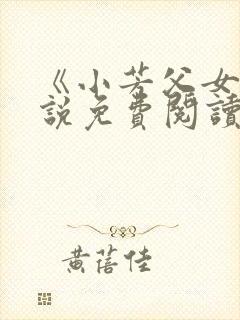 《小芳父女
說免費閱讀
黃蓓佳